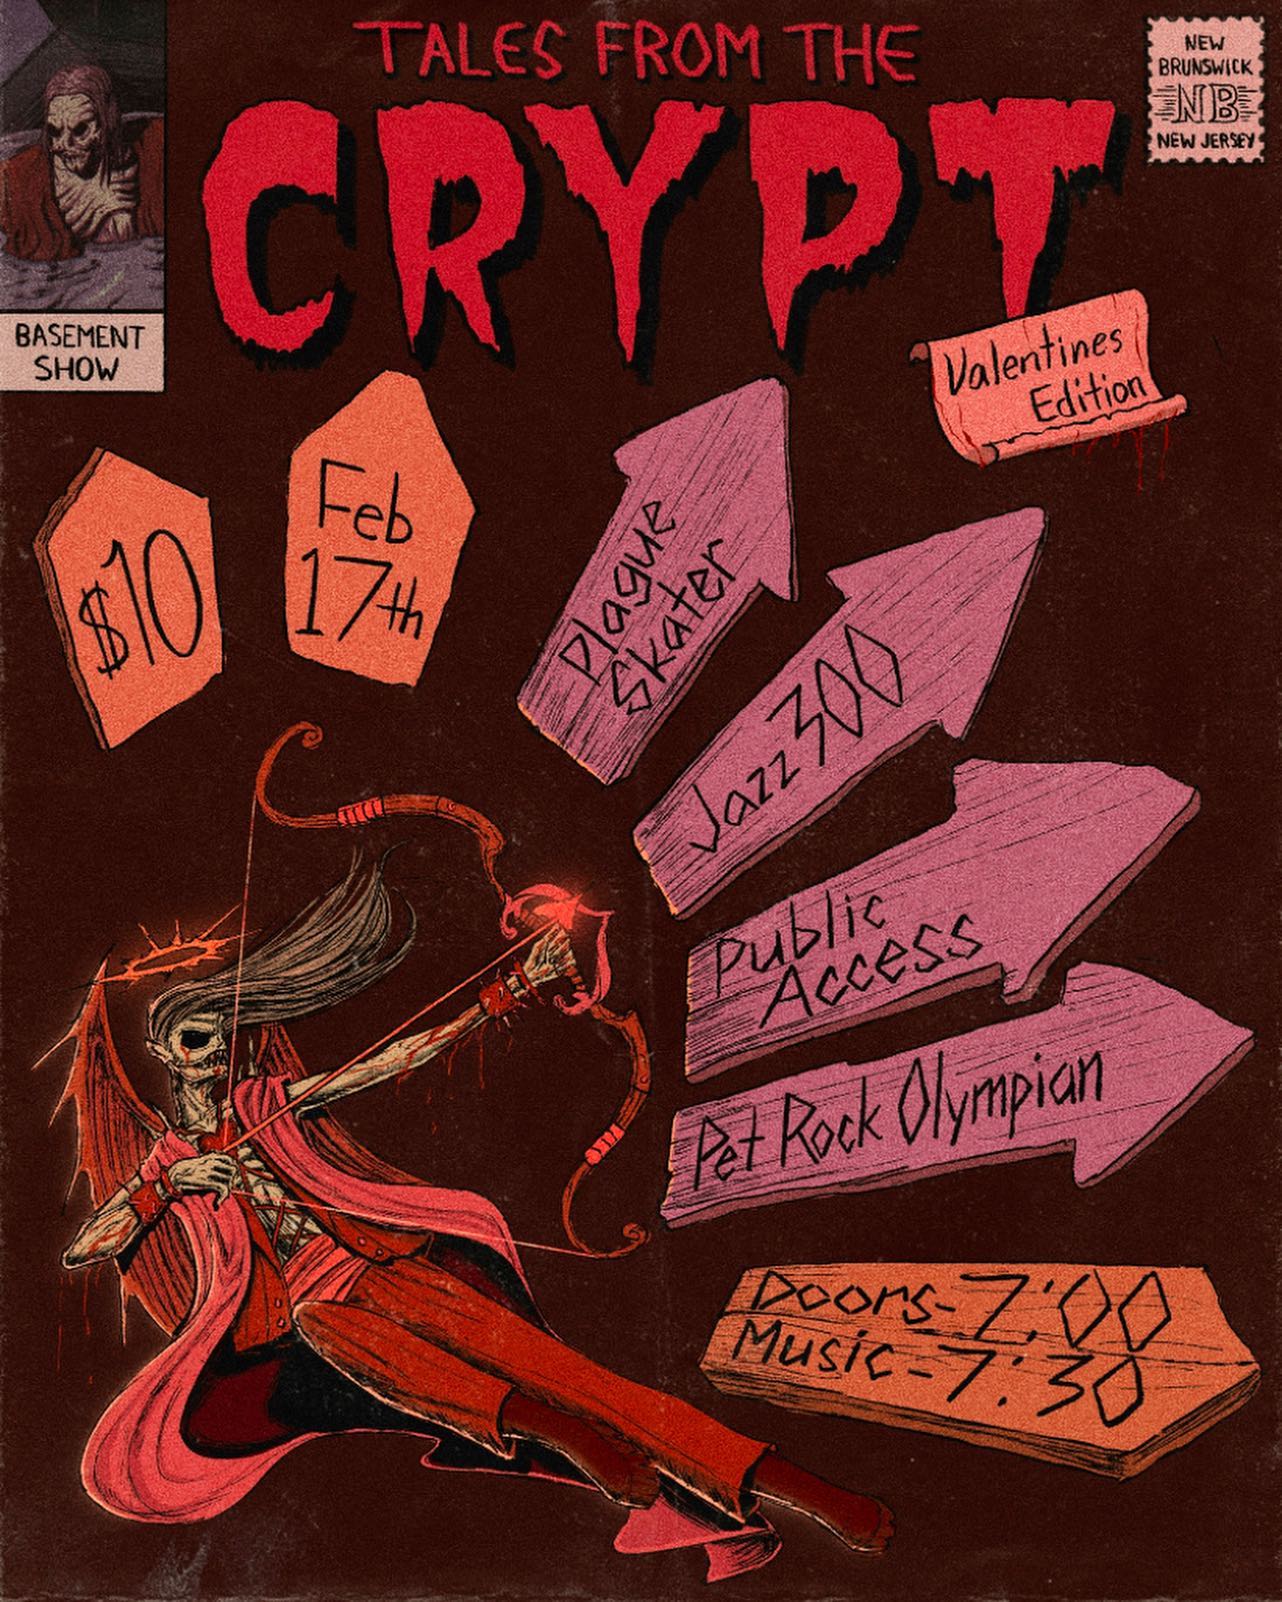 TALES FROM THE
CRYPT
NEW
BRUNSWICK
NB
NEW JERSEY
BASEMENT
SHOW
Valentines
Edition
$10
Feb
17th
Plague
Skater
Jazz 300
Public
Access
Pet Rock Olympian
Doors- 7:00
Music - 7:30